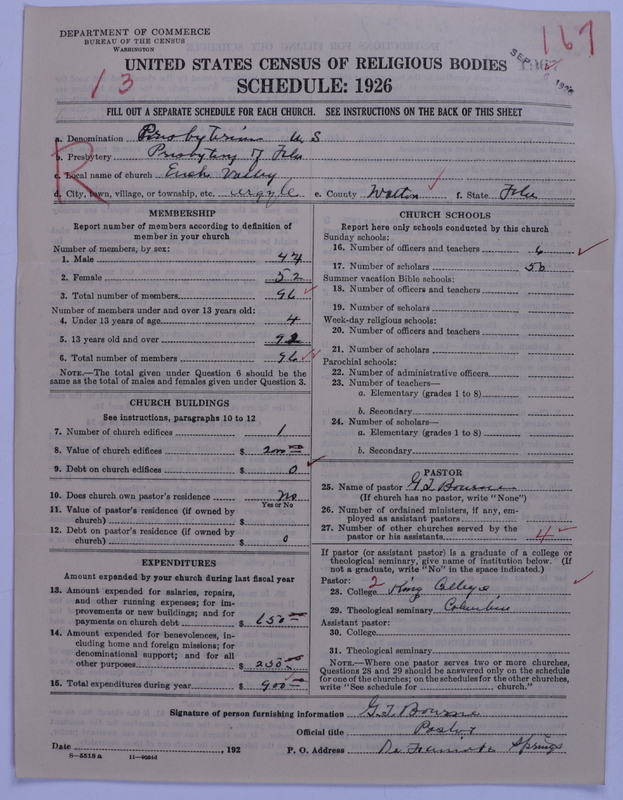 DEPARTMENT OF COMMERCE
BUREAU OF THE CENSUS
WASHINGTON
167
13
SEP
UNITED STATES CENSUS OF RELIGIOUS BODIES
SCHEDULE: 1926
FILL OUT A SEPARATE SCHEDULE FOR EACH CHURCH. SEE INSTRUCTIONS ON THE BACK OF THIS SHEET
R
a. Denomination Presbyterian U S
b. Presbytery Presbytery of Fla
c. Local name of church Euch Valley
d. City, town, village, or township, etc. Argyle e. County Walton f. State Fla
MEMBERSHIP
Report number of members according to definition of
member in your church
Number of members, by sex:
1. Male 44
2. Female 52
3. Total number of members 96
Number of members under and over 13 years old:
4. Under 13 years of age 4
5. 13 years old and over 92
6. Total number of members 96
NOTE.—The total given under Question 6 should be
the same as the total of males and females given under Question 3.
CHURCH BUILDINGS
See instructions, paragraphs 10 to 12
7. Number of church edifices 1
8. Value of church edifices $ 2000
9. Debt on church edifices $ 0
10. Does church own pastor's residence no
Yes or No
11. Value of pastor's residence (if owned by
church) $
12. Debt on pastor's residence (if owned by
church) $ 0
EXPENDITURES
Amount expended by your church during last fiscal year
13. Amount expended for salaries, repairs,
and other running expenses; for im-
provements or new buildings; and for
payments on church debt $ 650
14. Amount expended for benevolences, in-
cluding home and foreign missions; for
denominational support; and for all
other purposes $ 250
15. Total expenditures during year $ 900
CHURCH SCHOOLS
Report here only schools conducted by this church
Sunday schools:
16. Number of officers and teachers 6
17. Number of scholars 50
Summer vacation Bible schools:
18. Number of officers and teachers
19. Number of scholars
Week-day religious schools:
20. Number of officers and teachers
21. Number of scholars
Parochial schools:
22. Number of administrative officers
23. Number of teachers—
a. Elementary (grades 1 to 8)
b. Secondary
24. Number of scholars—
a. Elementary (grades 1 to 8)
b. Secondary
PASTOR
25. Name of pastor G T Bourne
(If church has no pastor, write "None")
26. Number of ordained ministers, if any, em-
ployed as assistant pastors
27. Number of other churches served by the
pastor or his assistants 4
If pastor (or assistant pastor) is a graduate of a college or
theological seminary, give name of institution below. (If
not a graduate, write "No" in the space indicated.)
Pastor: 2
28. College King College
29. Theological seminary Columbia
Assistant pastor:
30. College
31. Theological seminary
NOTE.—Where one pastor serves two or more churches,
Questions 28 and 29 should be answered only on the schedule
for one of the churches; on the schedules for the other churches,
write "See schedule for church."
Signature of person furnishing information G. T. Bourne
Official title Pastor
Date , 192 P. O. Address De Funiak Springs
8—5518 a